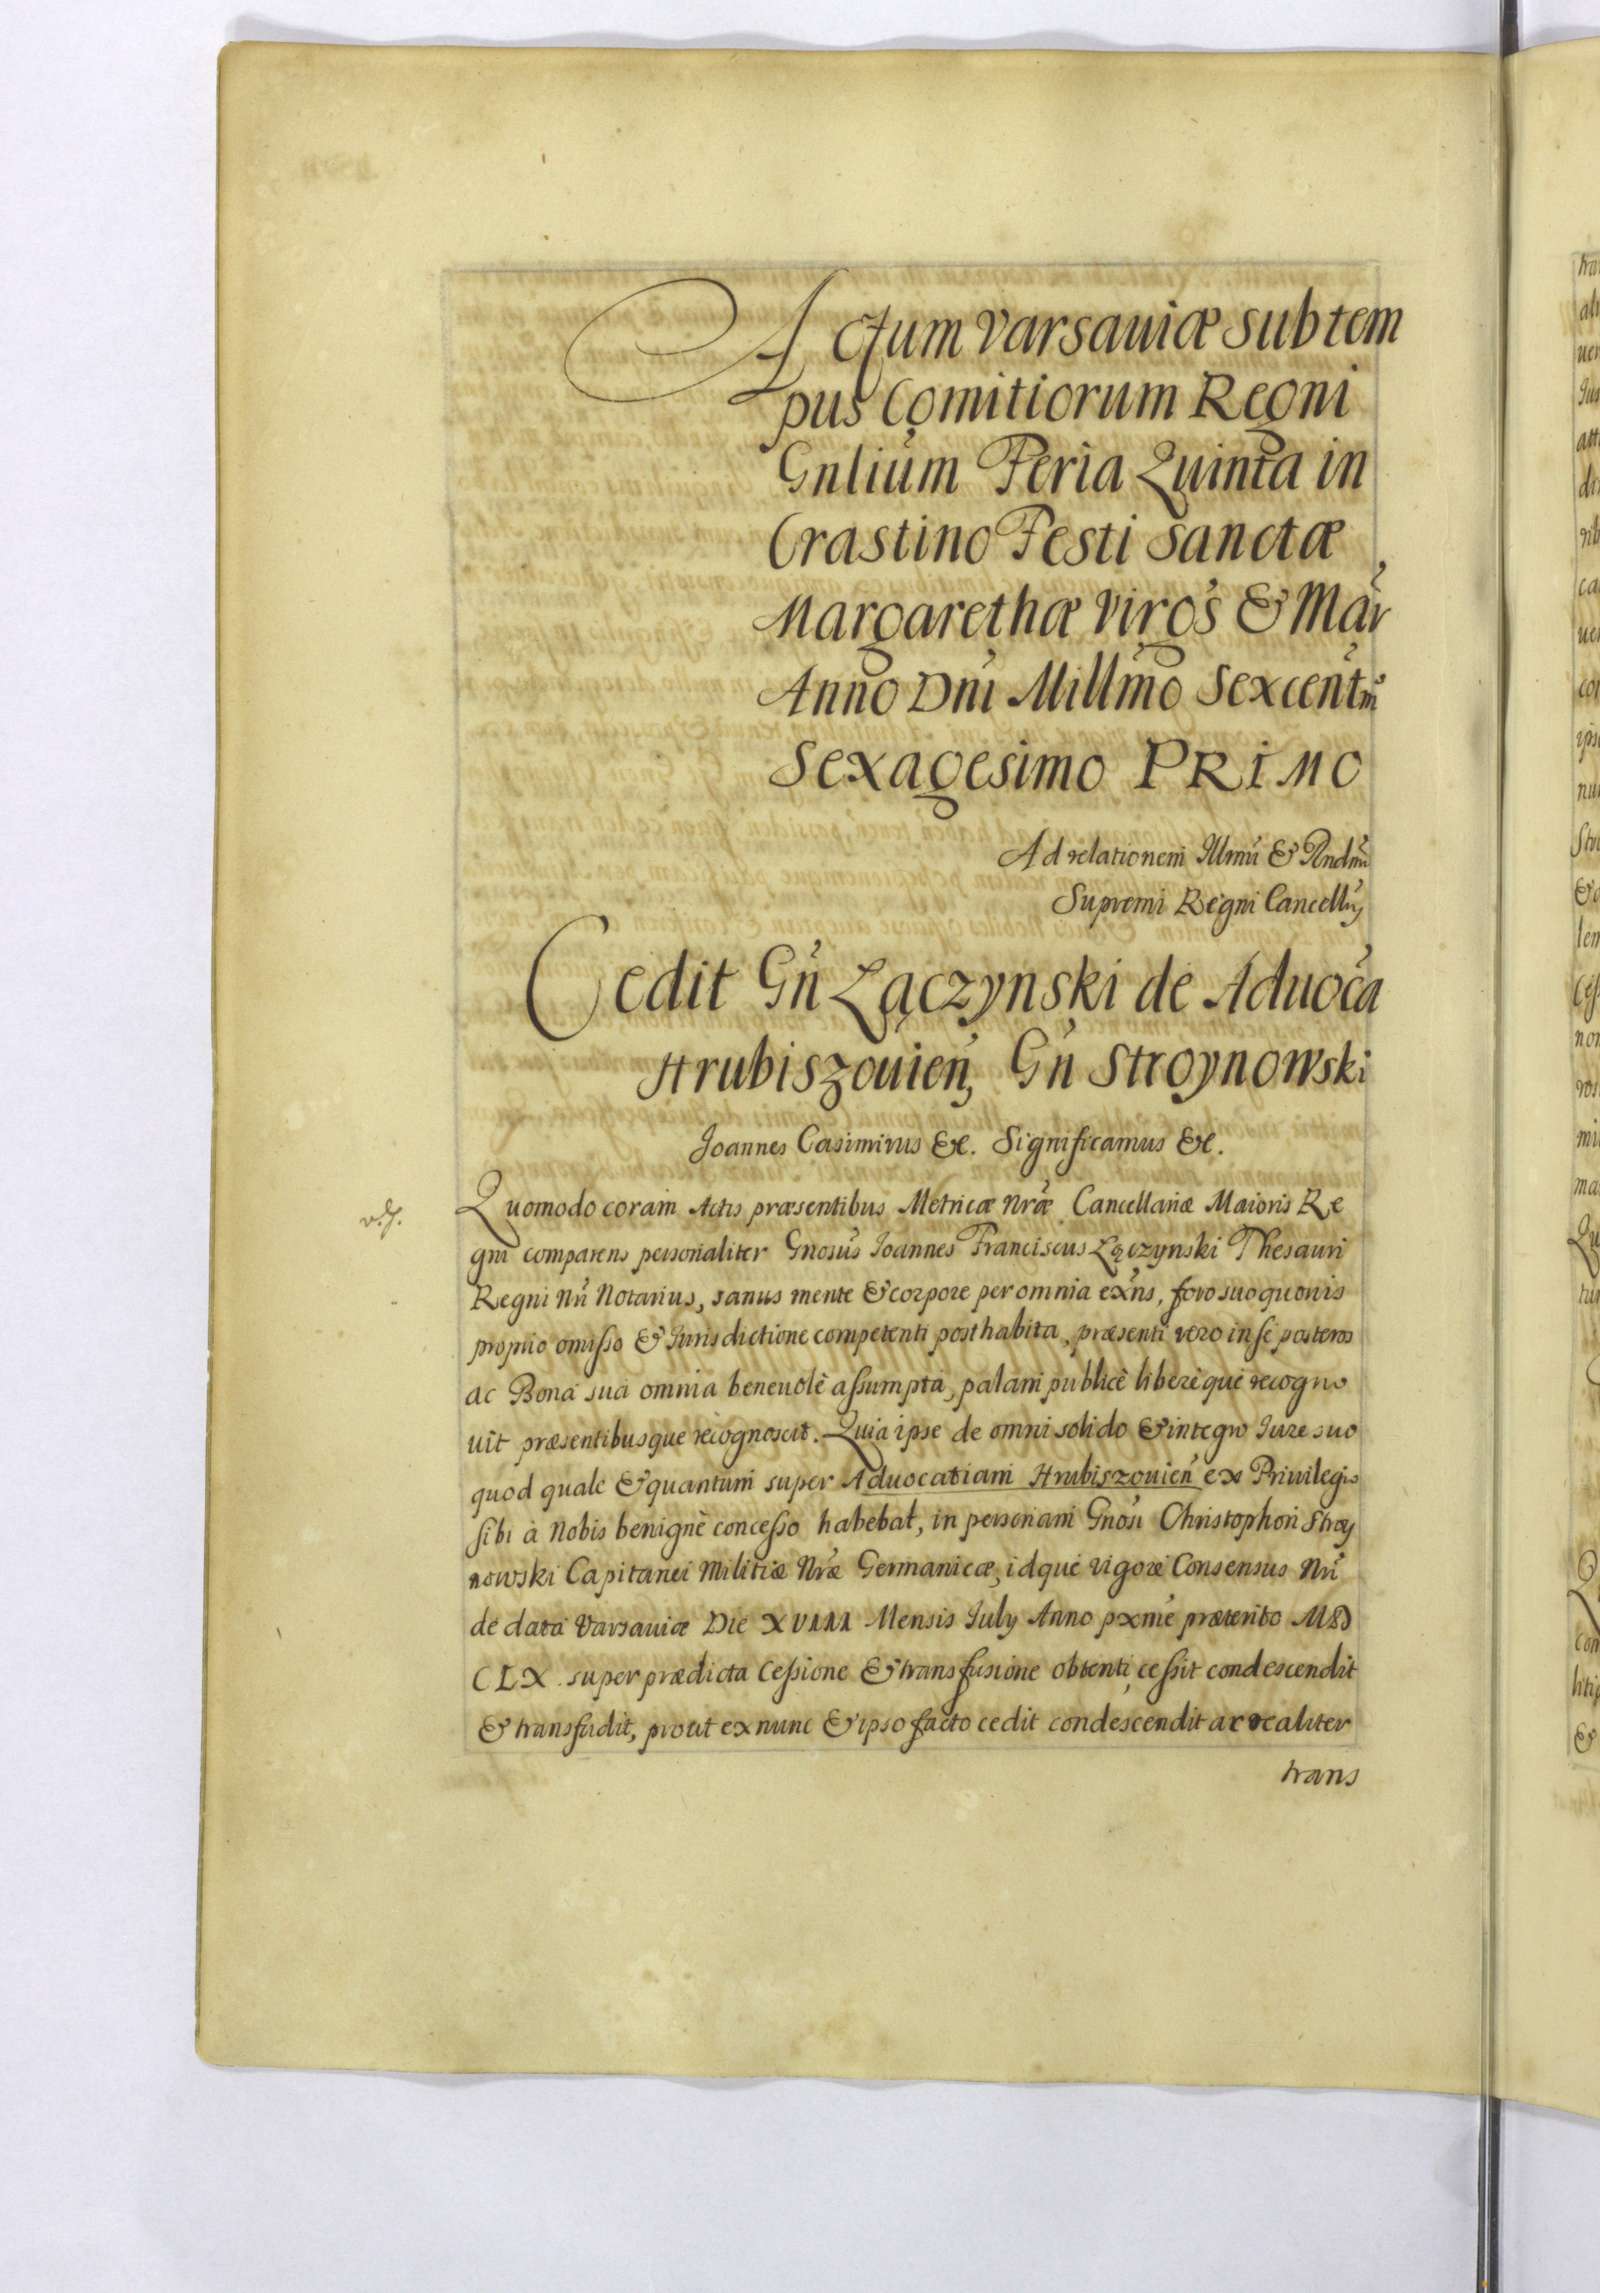 Actum Varsauiæ sub tem
pus Comitiorum Regni
Gnlium Feria Quinta in
Crastino Festi Sanctæ
Margarethæ Virgs & Mar
Anno Dni Millmo Sexcentm
Sexagesimo PRIMO
Ad relationem Illmi & Rndmi
Supremi Regni Cancellrij
Cedit Gn Łączynski de Aduoca
Hrubiszouien, Gn Stroynowski
Joannes Casimirus &c. Significamus &c.
Quomodo coram Actis præsentibus Metricæ Nræ Cancellariæ Maioris Re
gni comparens personaliter Gnosus Joannes Franciscus Łączynski Thesauri
Regni Nri Notarius, sanus mente & corpore per omnia exns, foro suo quouis
proprio omisso & Jurisdictione competenti posthabita, præsenti vero in se posteros
ac Bona sua omnia beneuolè assumpta, palam publicè liberèque recogno
uit præsentibusque recognoscit. Quia ipse de omni solido & integro Jure suo
quod quale & quantum super Aduocatiam Hrubiszouien ex Priuilegio
sibi à Nobis benignè concesso habebat, in personam Gnosi Christophori Stroy
nowski Capitanei Militiæ Nræ Germanicæ, idque vigore Consensus Nri
de data Varsauiæ Die XVIII Mensis July Anno pxmè præterito MD
CLX. super prædicta Cessione & transfusione obtenti, cessit condescendit
& transfudit, prout ex nunc & ipso facto cedit condescendit ac realiter
trans